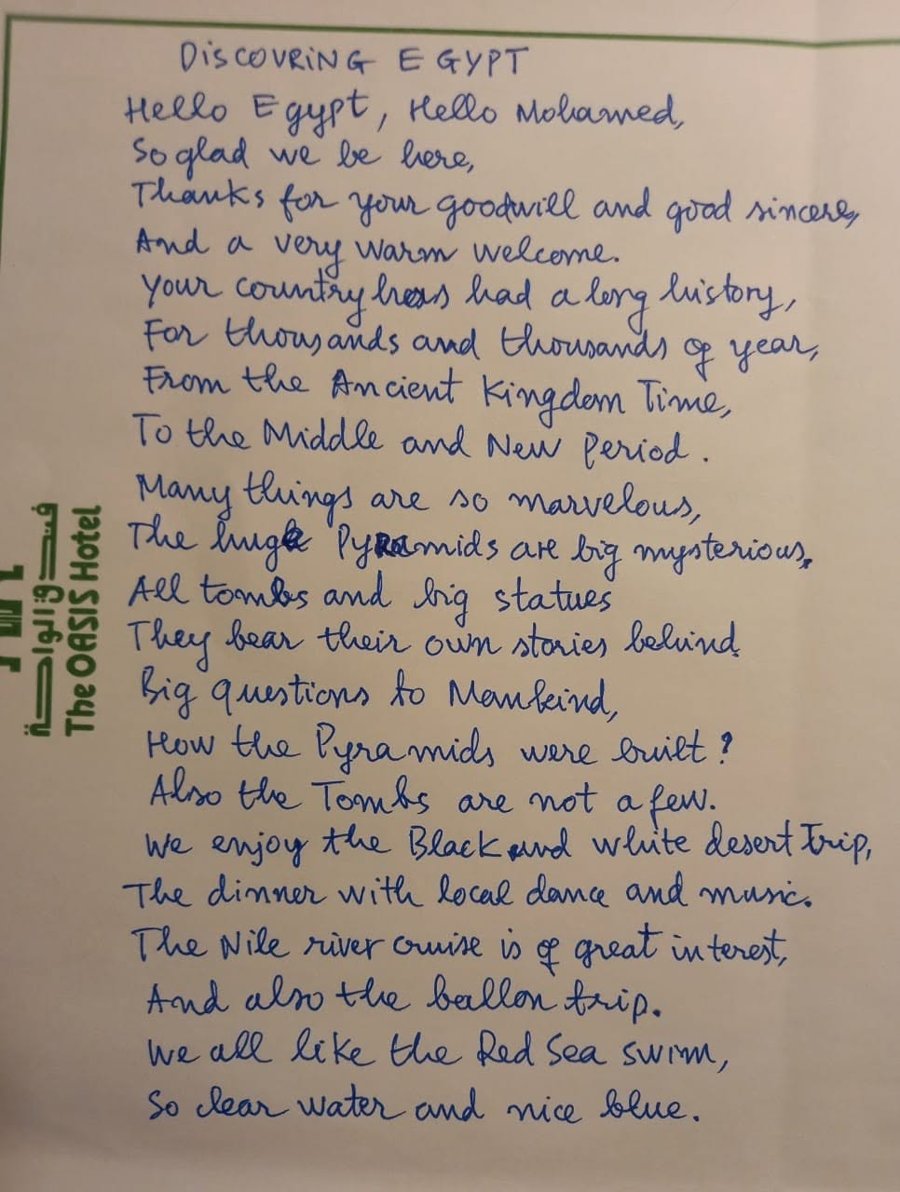 DISCOVRING EGYPT
Hello Egypt, Hello Mohamed,
So glad we be here,
Thanks for your goodwill and good sincere,
And a very warm welcome.
Your country has had a long history,
For thousands and thousands of year,
From the Ancient Kingdom Time,
To the Middle and New Period.
Many things are so marvelous,
The huge Pyramids are big mysterious.
All tombs and big statues
They bear their own stories behind.
Big questions to Mankind,
How the Pyramids were built?
Also the Tombs are not a few.
We enjoy the Black and white desert trip,
The dinner with local dance and music.
The Nile river cruise is of great interest,
And also the ballon trip.
We all like the Red Sea swim,
So clear water and nice blue.
فندق الواحة
The OASIS Hotel